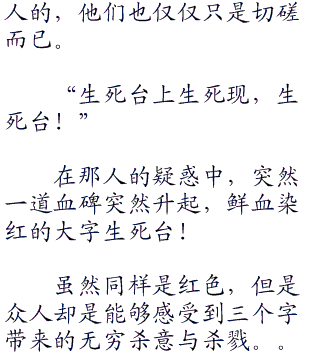 人的，他们也仅仅只是切磋
而已。
“生死台上生死现，生
死台！”
在那人的疑惑中，突然
一道血碑突然升起，鲜血染
红的大字生死台！
虽然同样是红色，但是
众人却是能够感受到三个字
带来的无穷杀意与杀戮。。